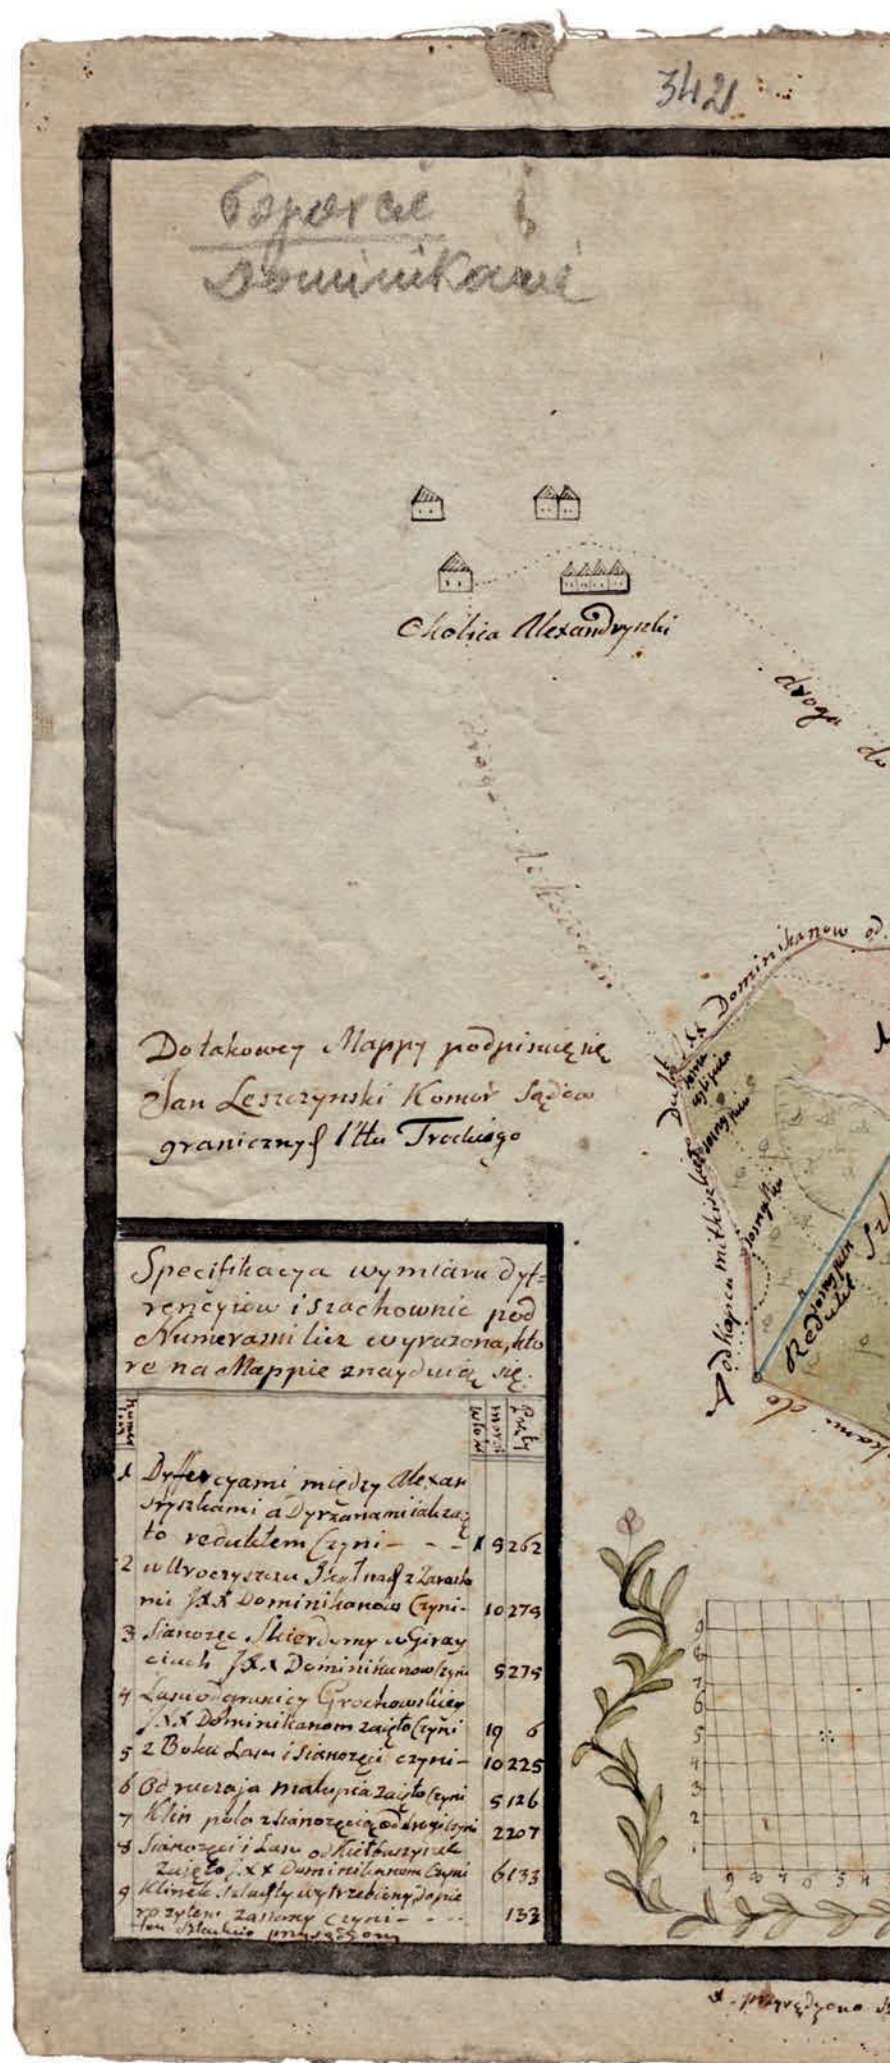 3421
Toporcie
Dominikanie
Okolica Alexandryszki
droga do
droga do Kowian
Dominikanow od
Do takowey Mappy podpisuię się
Jan Leszczynski Komor Sądow
graniczny Ptu Trockiego
Redukt
od Kopca
do
Specifikacya wymiaru dyf=
rencyiow i szachownic pod
Numerami liez wyrazona, kto
re na Mappie znayduią się.
Numer
włók morg Pręty
1 Dyfferyami między Alexan
dryszkami a Dyrżanami iak zaię
to reduktem Czyni - - - 1 9 262
2 w Uroczyszczu
mi JXX Dominikanow Czyni - 10 279
3 Sianożęc w Giray
ciach JXX Dominikanow Czyni 5 275
4 Lasu od granicy Grochowskiey
JXX Dominikanom zaięto Czyni 19 6
5 z Boku Lasu i Sianożęci czyni - 10 225
6 Od ruczaja małupia zaięto Czyni 5 126
7 Klin pola z sianożęcią od drogi Czyni 2 207
8 Sianożęci i Lasu od Kiełbaszyszek
Zaięto JXX Dominikanom Czyni 6 133
9 Klinek Szlachty wytrzebiony dopie
ro żytem zasiany czyni - - - 133
9
8
7
6
5
4
3
2
1
9 8 7 6 5 4